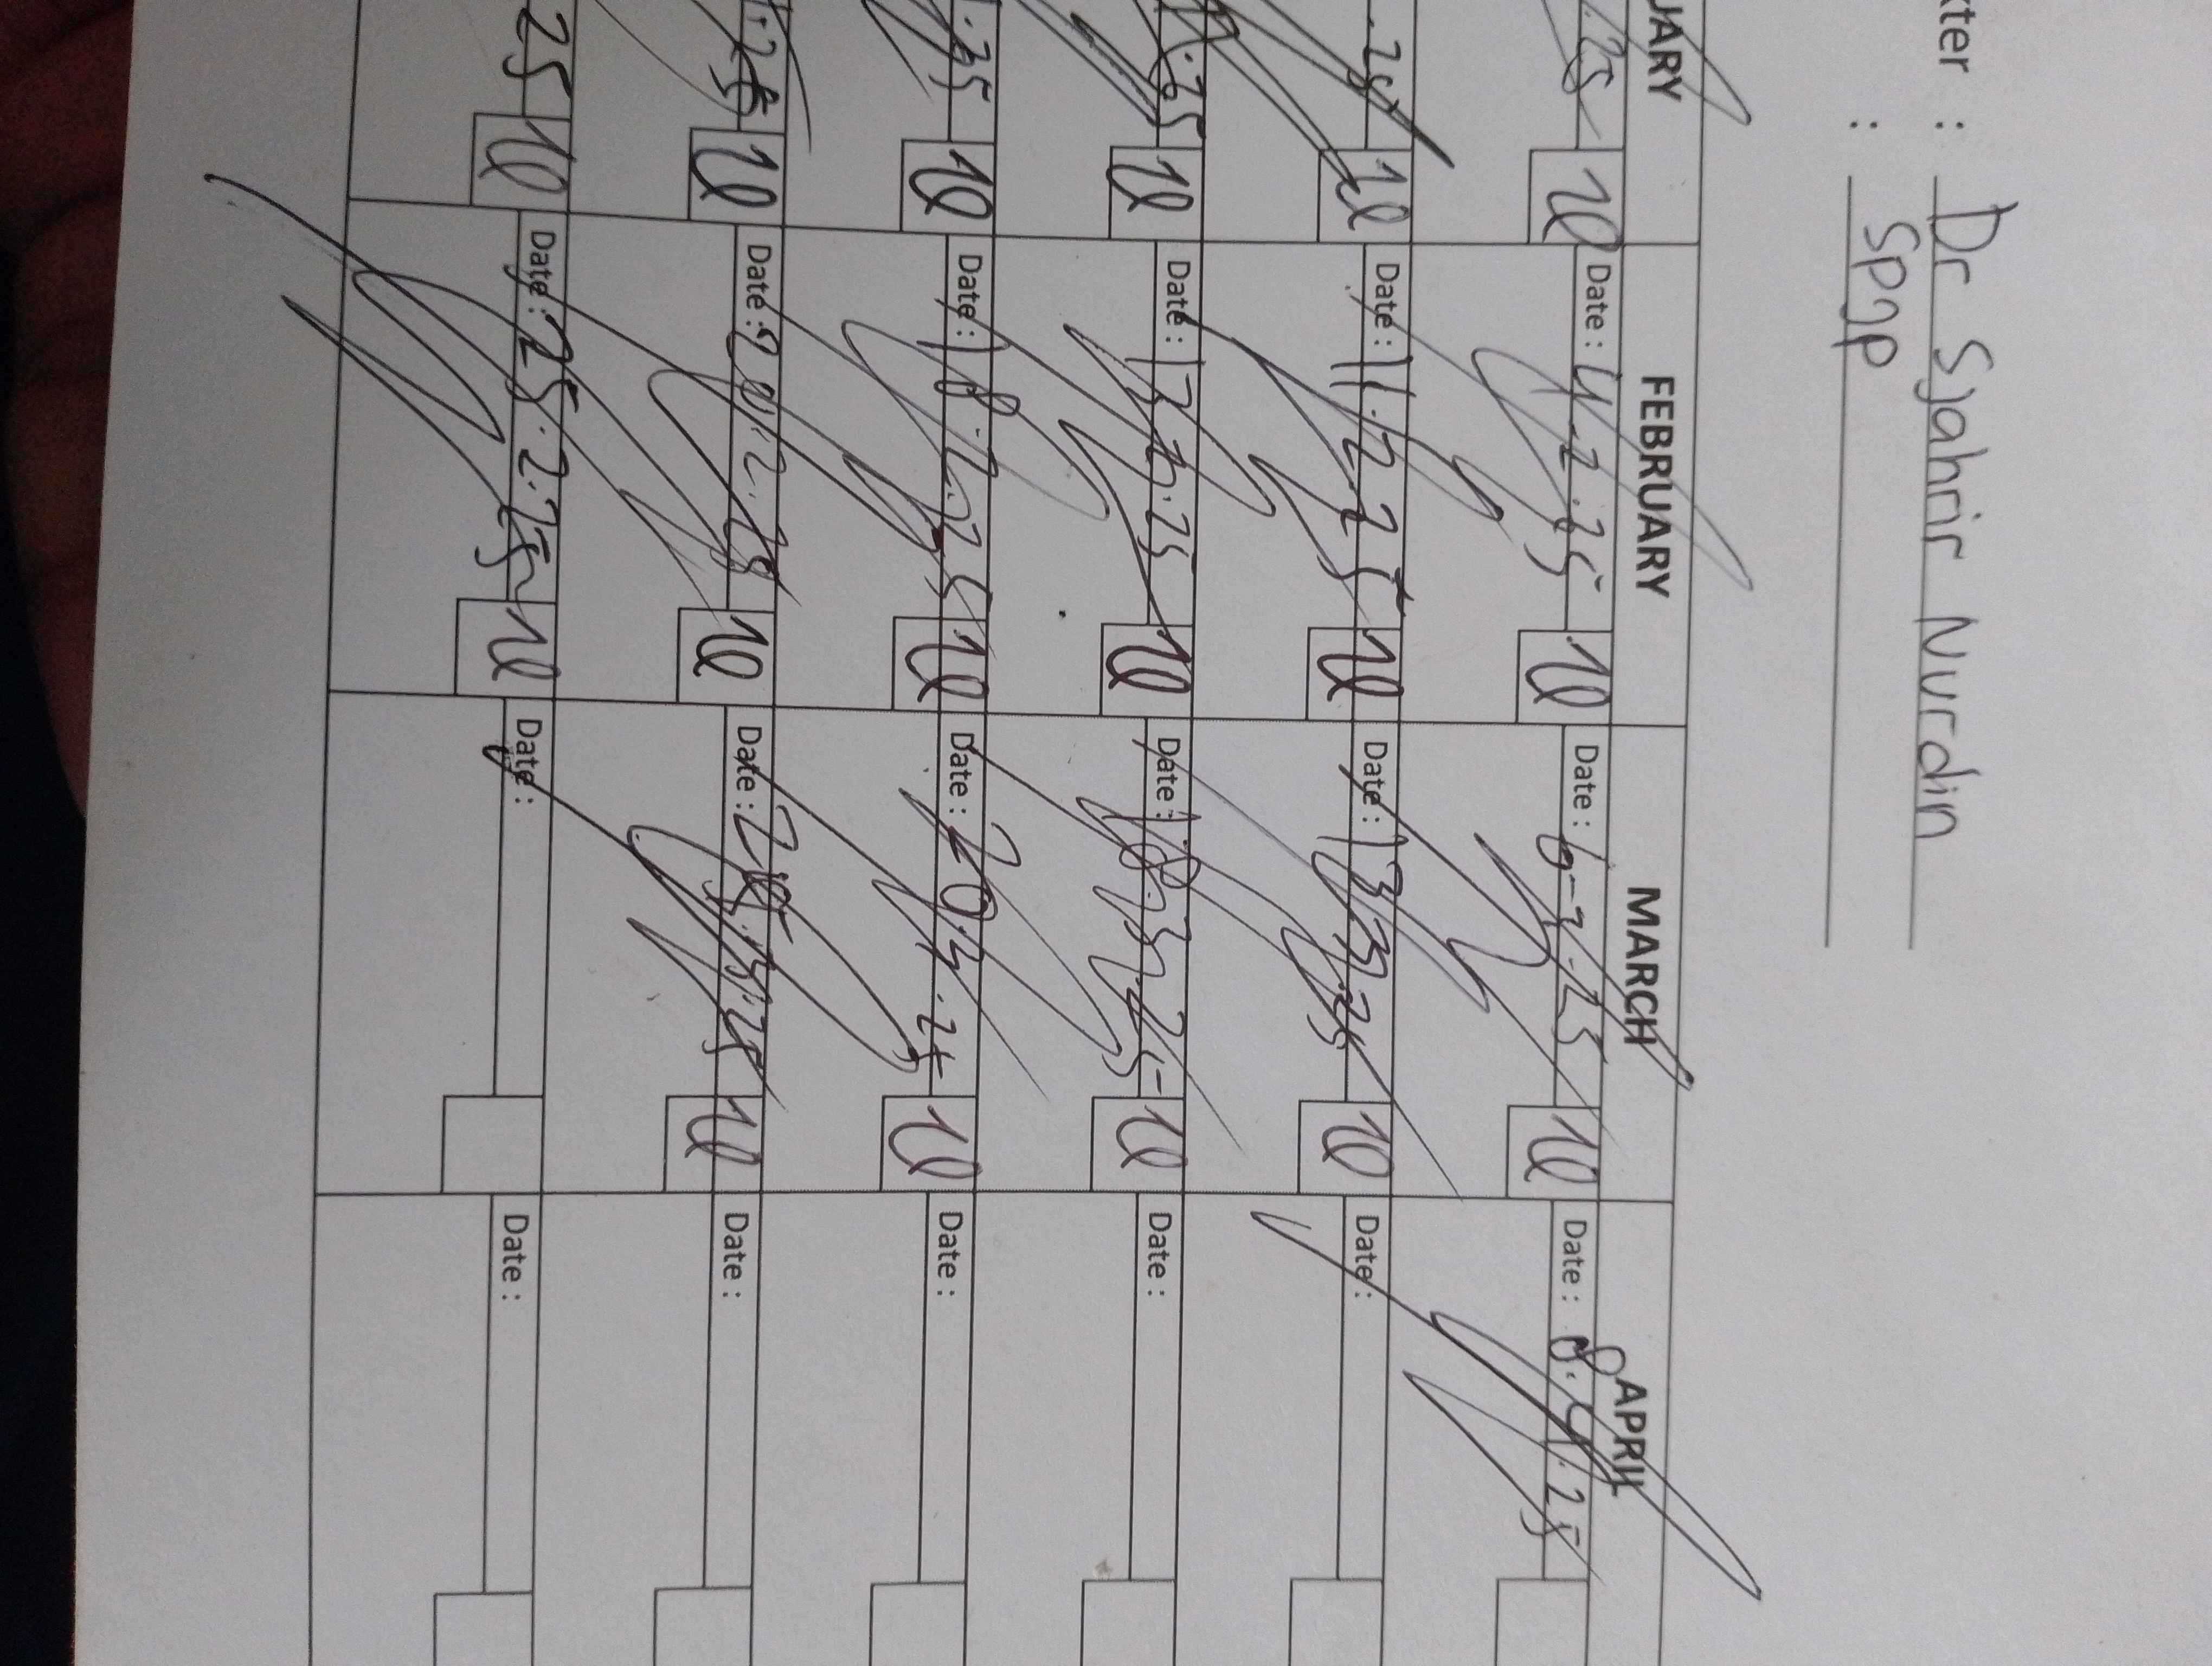 kter : Dr Sjahrir Nurdin
: spgp
UARY FEBRUARY MARCH APRIL
.25 10 Date : 4.2.25 10 Date : 6-3-25 10 Date : 8.4.25
.25 10 Date : 11.2.25 10 Date : 13.3.25 10 Date :
.25 10 Date : 13.2.25 10 Date : 18.3.25 10 Date :
.25 10 Date : 18.2.25 10 Date : 20.3.25 10 Date :
.25 10 Date : 10 Date : 10 Date :
25 10 Date : 25.2.25 10 Date : Date :